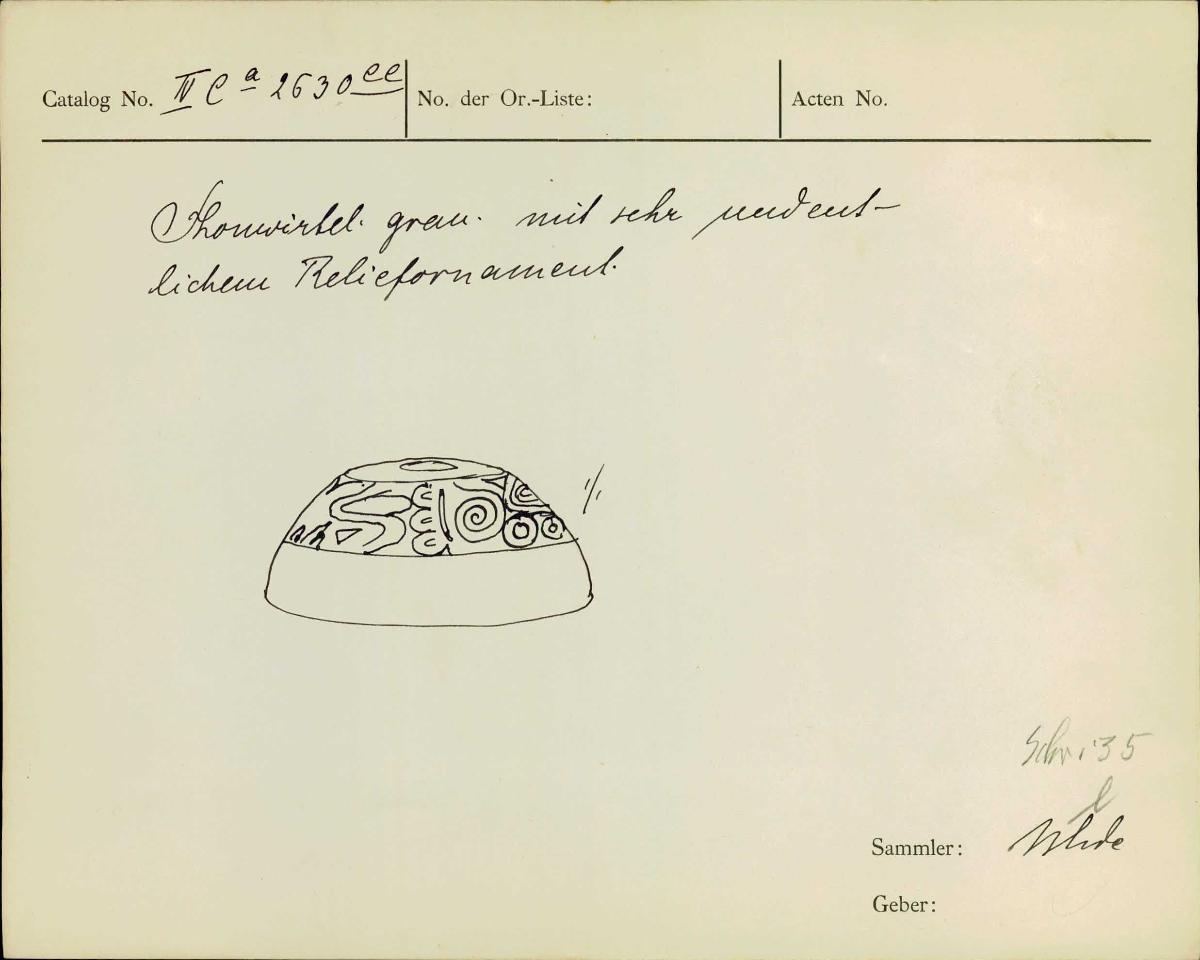 Catalog No. IV Ca 2630 ee
No. der Or.-Liste:
Acten No.
Thonwirtel. grau. mit sehr undeut-
lichem Reliefornament.
1/1
Schr. 35
Sammler: Uhde
Geber: